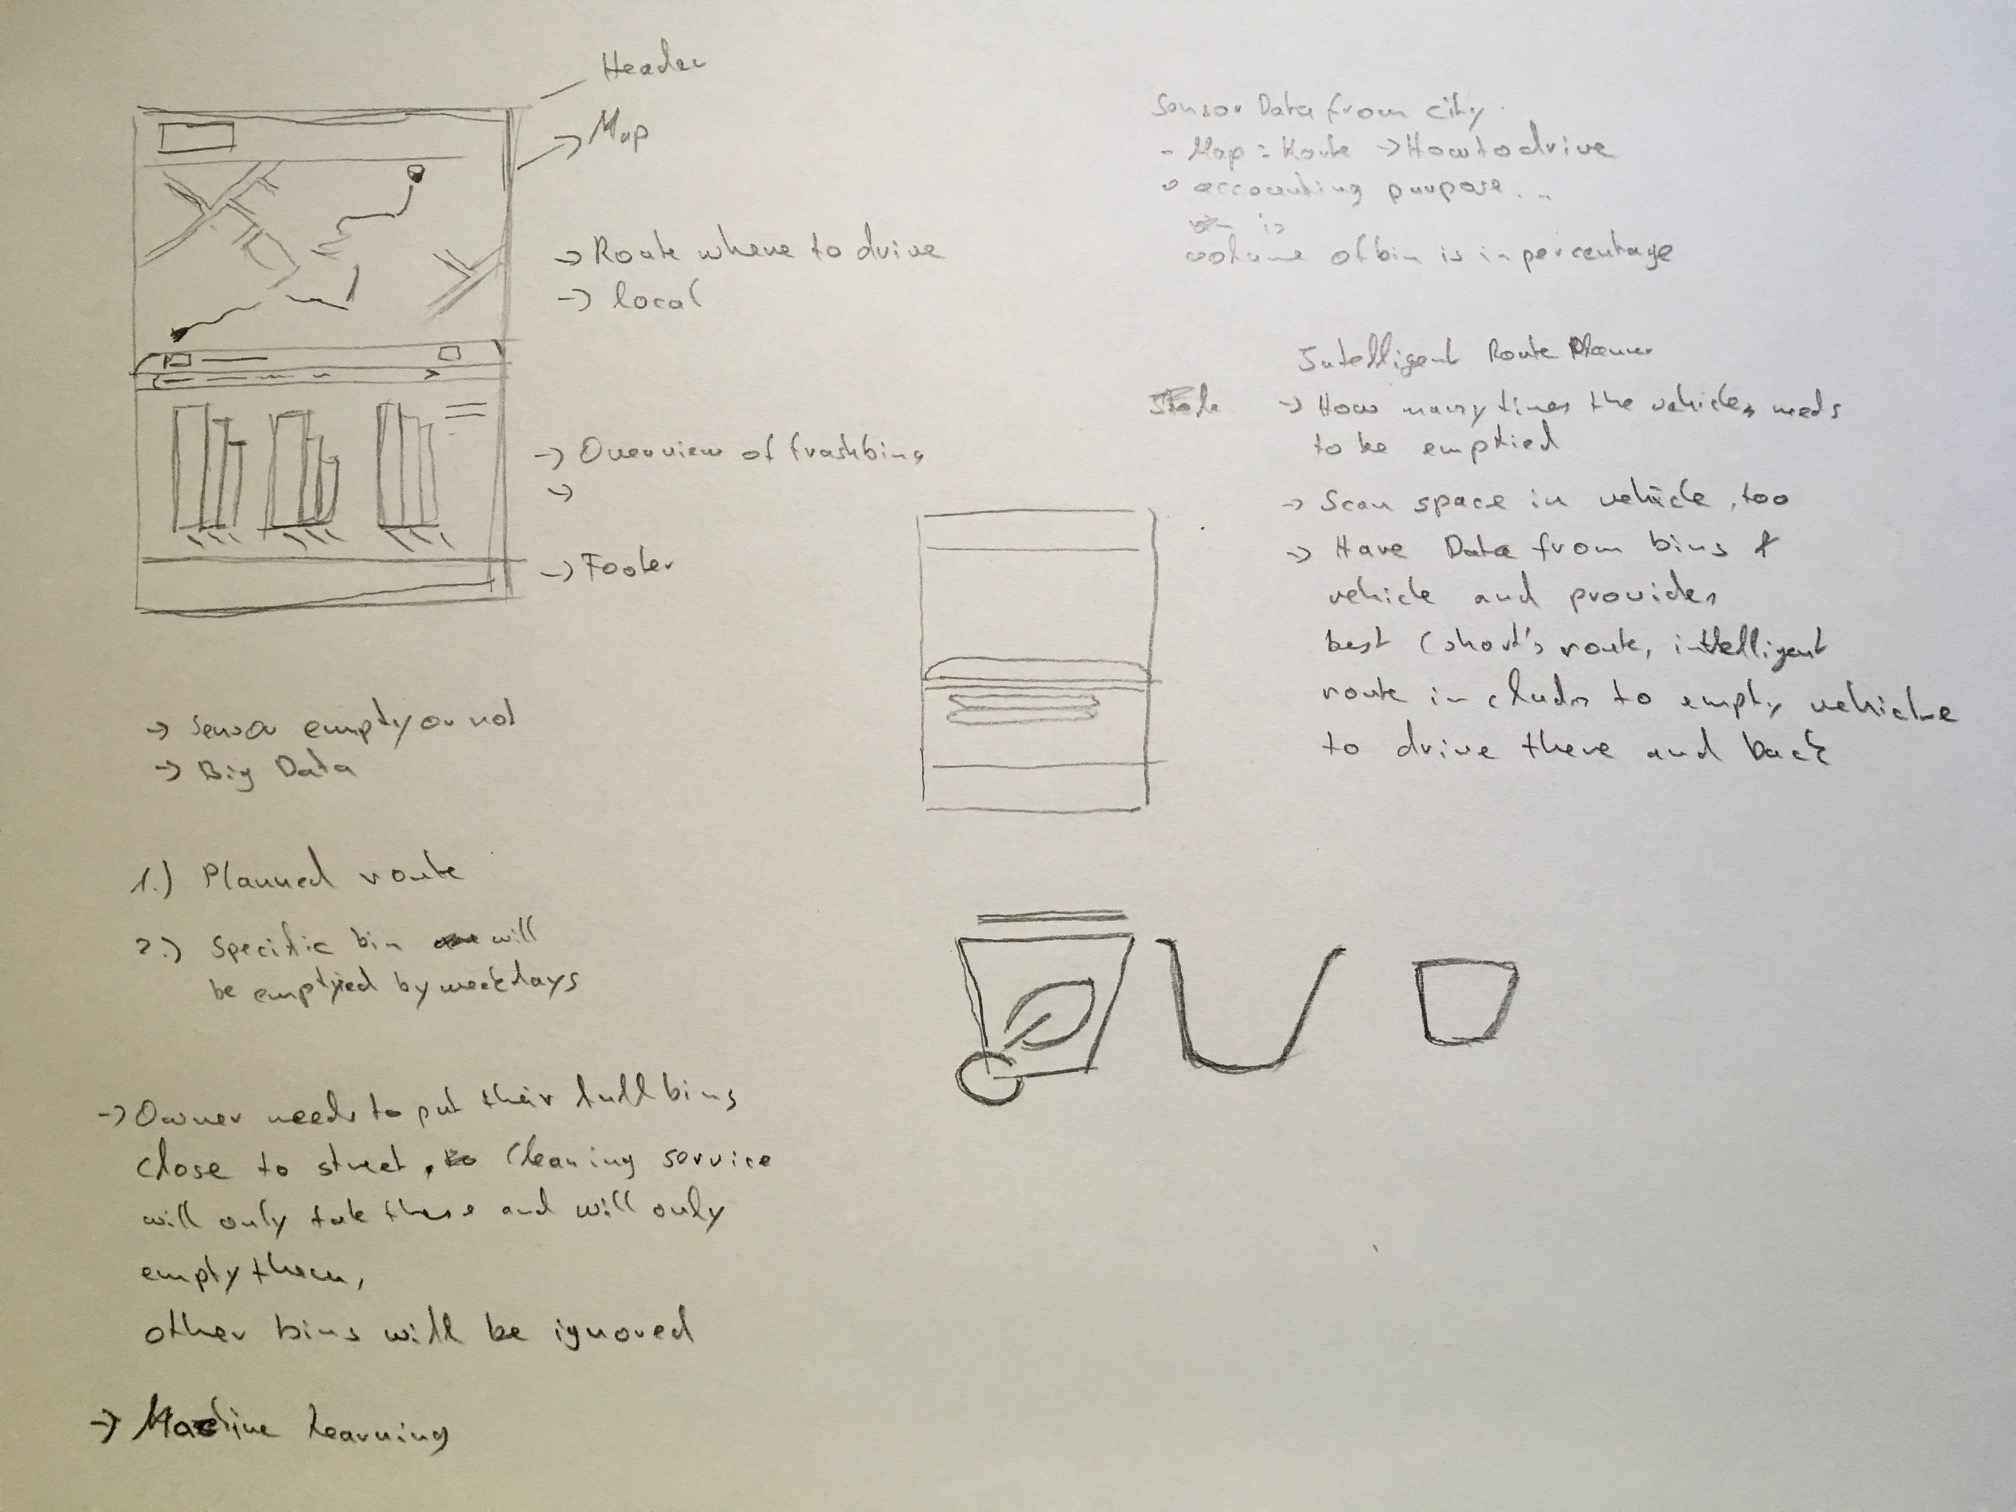 Header
Map
Route where to drive
local
Overview of trashbins
Footer
Sensor empty or not
Big Data
1.) Planned route
2.) Specific bin will
be emptied by weekdays
Owner needs to put their full bins
close to street, Cleaning service
will only take these and will only
empty them,
other bins will be ignored
Machine Learning
Sensor Data from city
- Map: Route → How to drive
accounting purpose...
is
volume of bin is in percentage
Intelligent Route Planner
→ How many times the vehicles needs
to be emptied
→ Scan space in vehicle, too
→ Have Data from bins &
vehicle and provides
best (short's route, intelligent
route includes to empty vehicle
to drive there and back